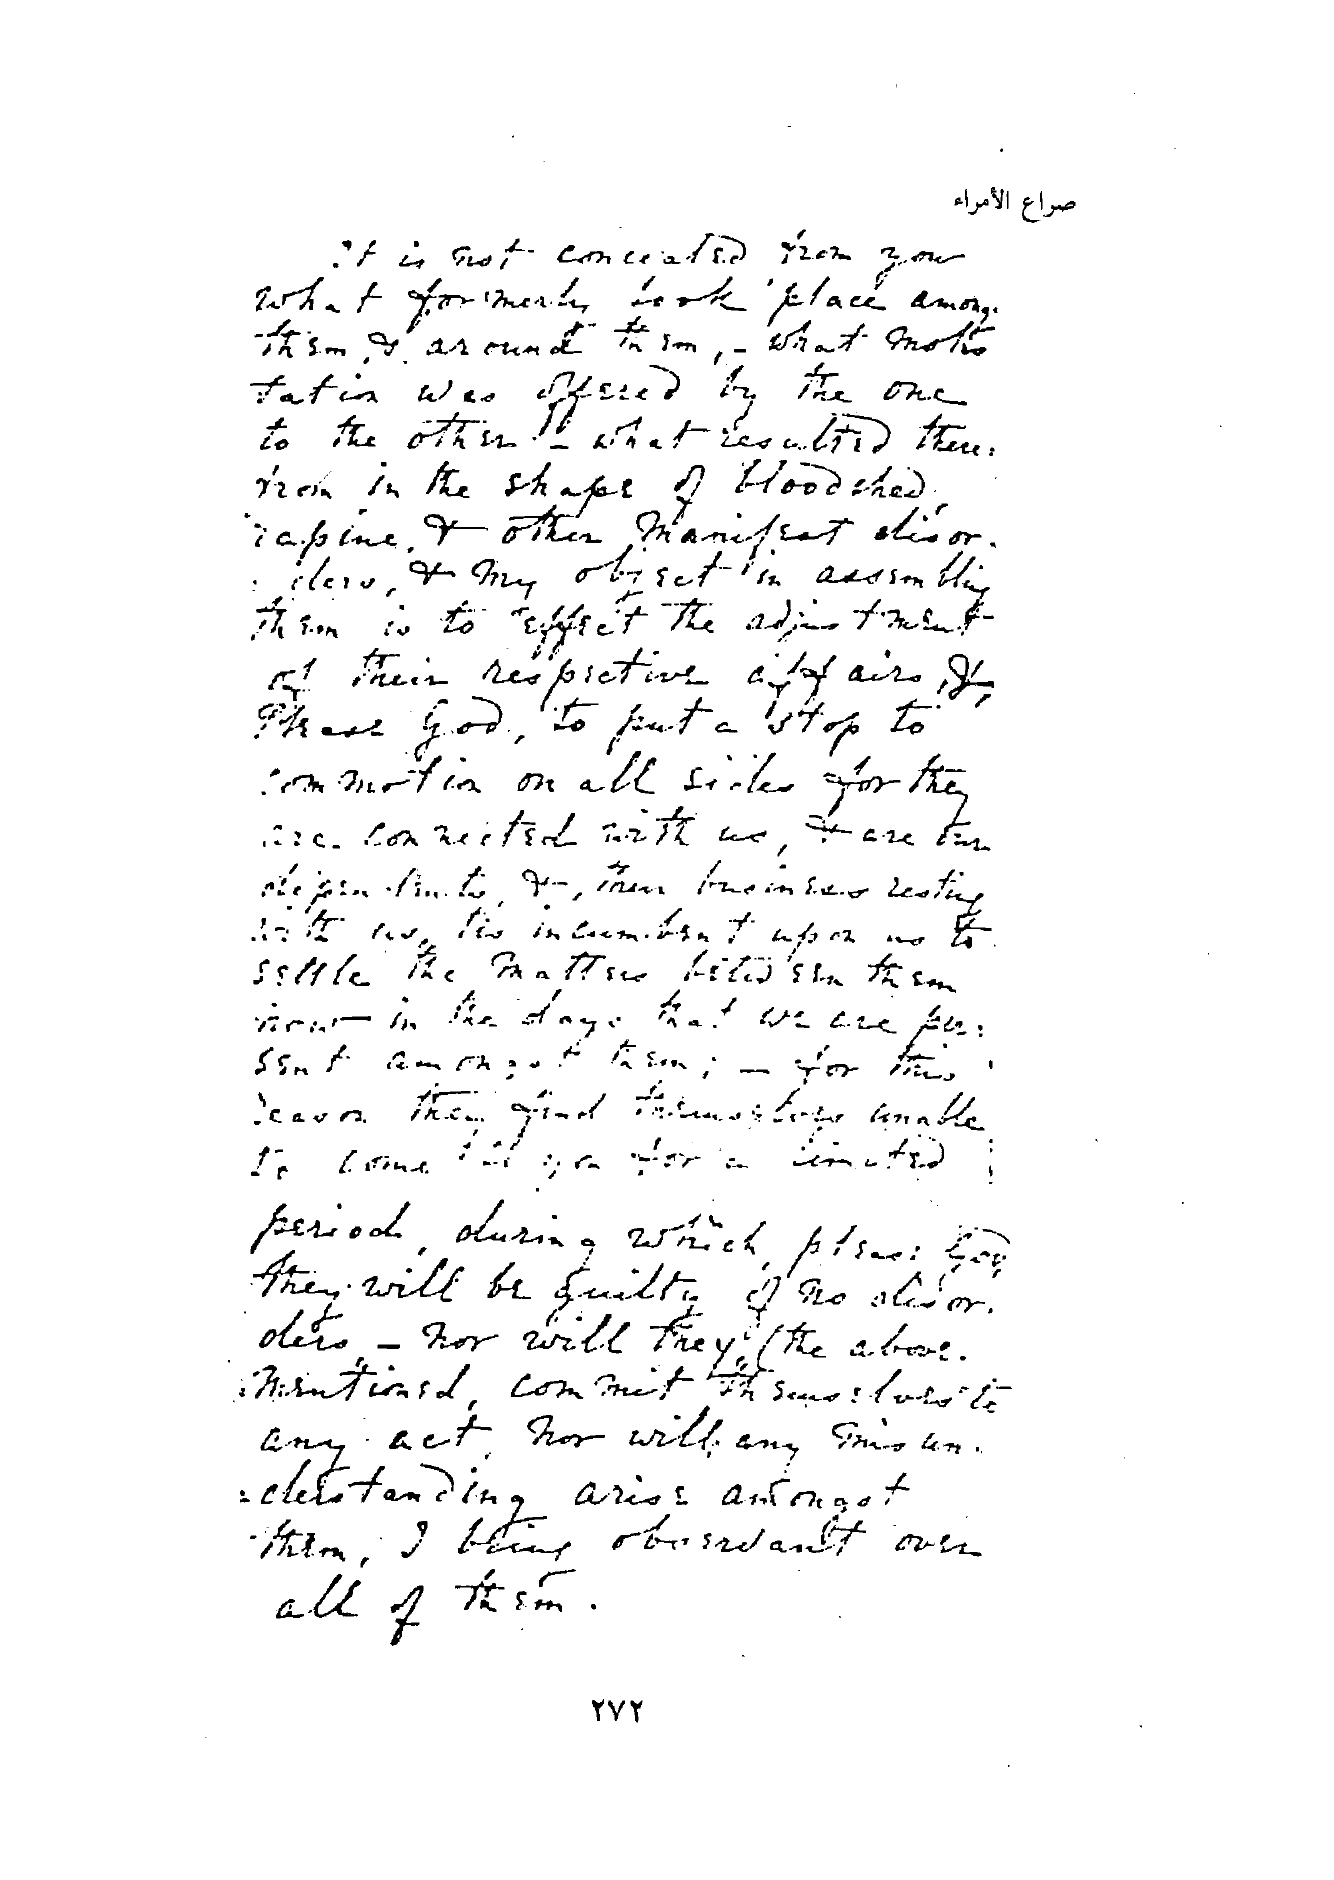 صراع الأمراء
It is not concealed from you
what formerly took place among
them, & around them, - what moles
tation was offered by the one
to the other - what resulted there:
from in the shape of bloodshed,
rapine, & other manifest disor.
:ders, & my object in assembling
them is to effect the adjustment
of their respective affairs, &,
Please God, to put a stop to
commotion on all sides for they
are connected with us, & are our
dependents, &, their business resting
with us, tis incumbent upon us to
settle the matters between them
now in the days that we are pre:
sent amongst them; - for this
reason they find themselves unable
to come to you for a limited
period, during which, please God,
they will be guilty of no disor.
ders, - nor will they, (the above.
mentioned, commit themselves to
any act, nor will any misun.
:derstanding arise amongst
them, I being observant over
all of them.
٢٧٢